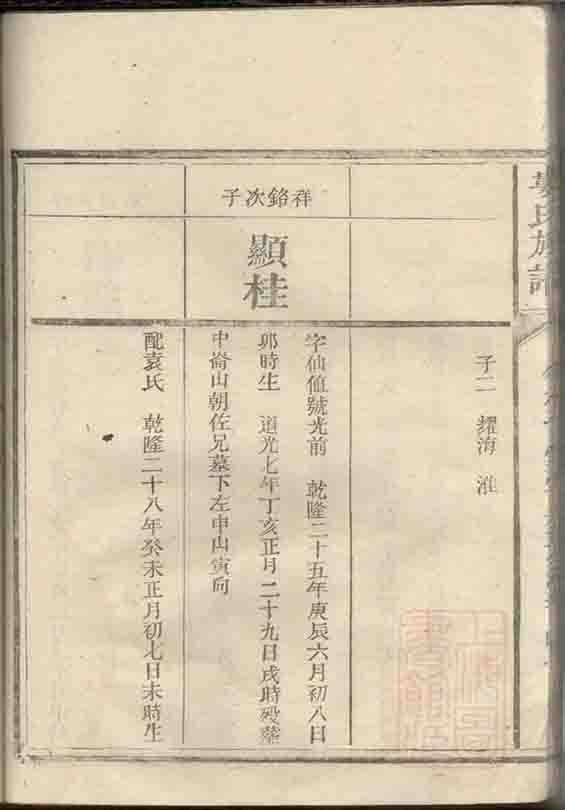 氏族譜
子二 耀海 淮
祥銘次子
顯桂
字仙值號光前 乾隆二十五年庚辰六月初八日
卯時生 道光七年丁亥正月二十九日戌時歿葬
中崙山朝佐兄墓下左申山寅向
配袁氏 乾隆二十八年癸未正月初七日未時生
上海圖書館藏